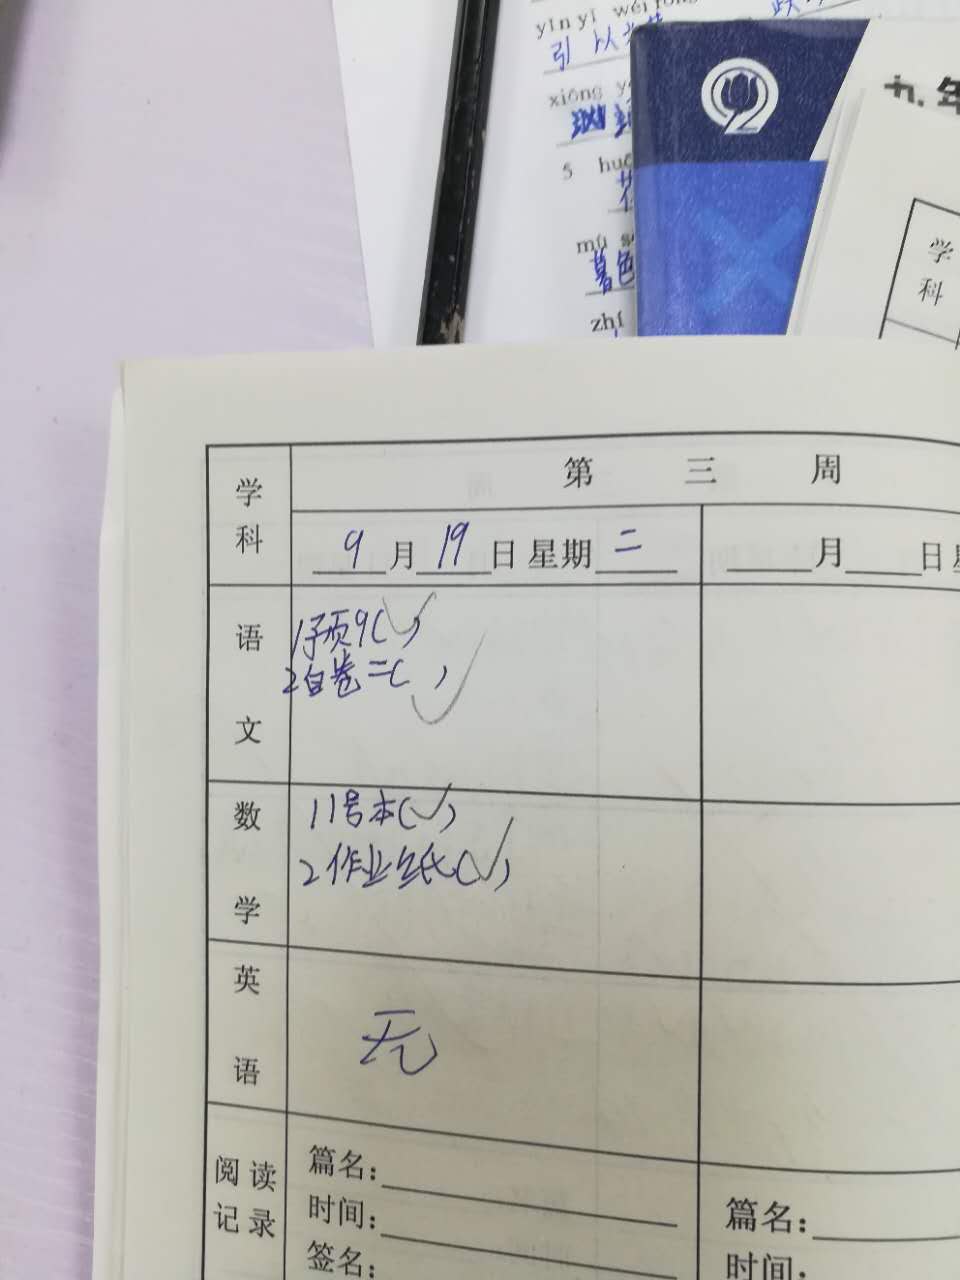 yǐn yǐ wéi
引以为
xiōng
5
mù
暮色
zhí
九年
学
科
学科
第三周
9月19日星期二
月 日
语文
1预9(✓)
2自卷二( )✓
数学
1 1号本(✓)
2作业纸(✓)
英语
无
阅读记录
篇名:
时间:
签名:
篇名:
时间: